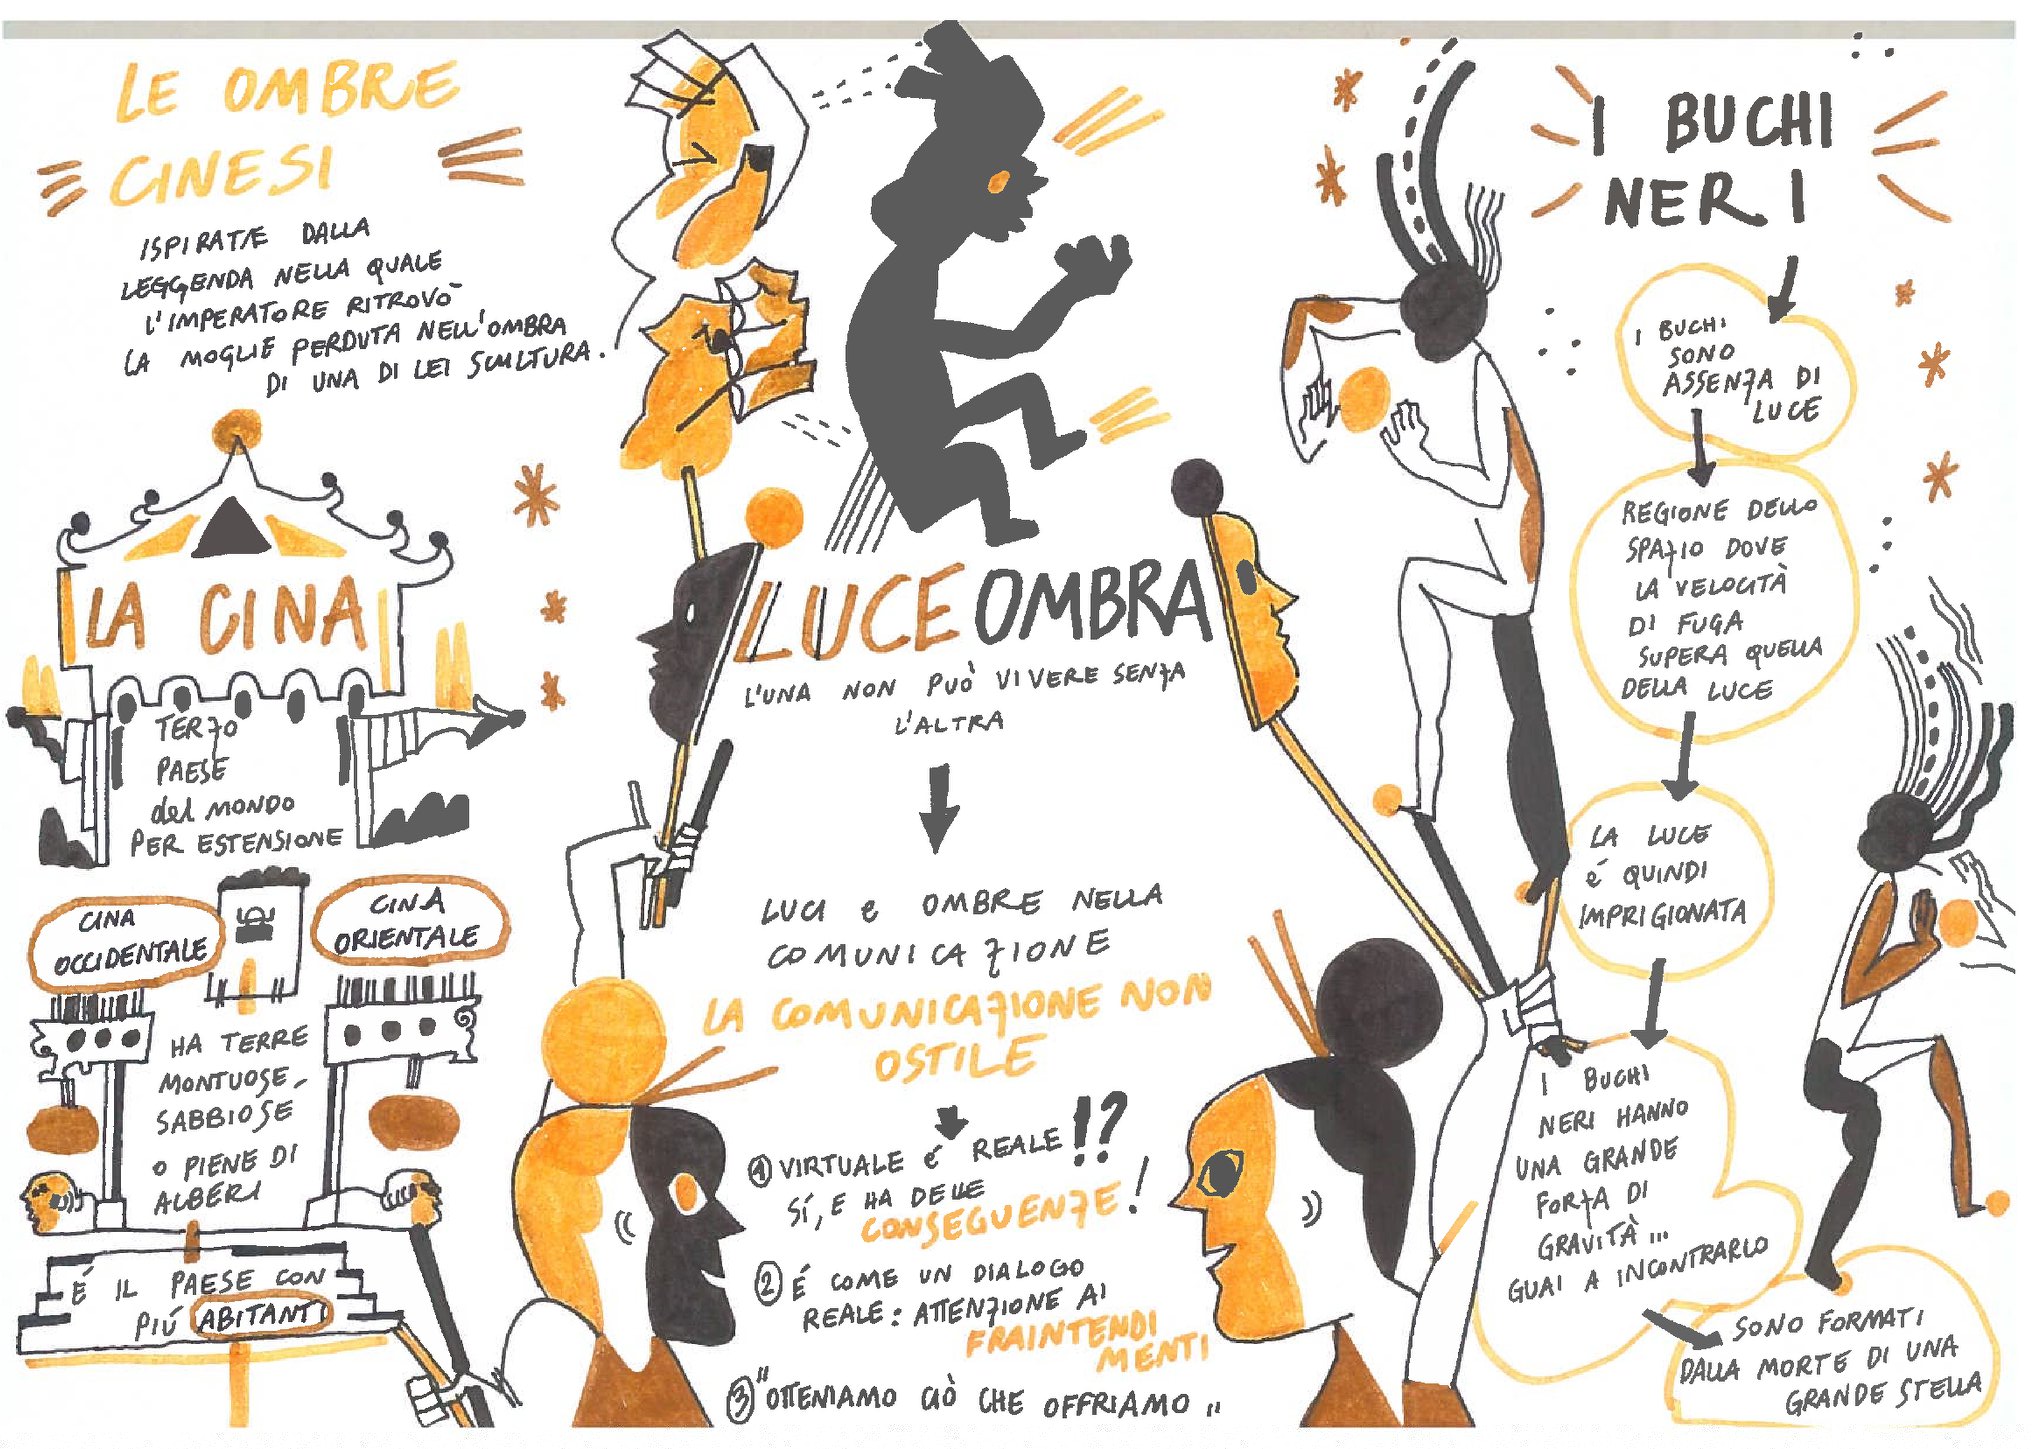 LE OMBRE
CINESI
ISPIRATE DALLA
LEGGENDA NELLA QUALE
L'IMPERATORE RITROVÒ
LA MOGLIE PERDUTA NELL'OMBRA
DI UNA DI LEI SCULTURA.
LA CINA
TERZO
PAESE
del MONDO
PER ESTENSIONE
CINA
OCCIDENTALE
CINA
ORIENTALE
HA TERRE
MONTUOSE,
SABBIOSE
O PIENE DI
ALBERI
É IL PAESE CON
PIÚ ABITANTI
LUCE OMBRA
L'UNA NON PUÒ VIVERE SENZA
L'ALTRA
LUCI e OMBRE NELLA
COMUNICAZIONE
LA COMUNICAZIONE NON
OSTILE
① VIRTUALE é REALE !?
SÍ, E HA DELLE
CONSEGUENZE!
② É COME UN DIALOGO
REALE: ATTENZIONE AI
FRAINTENDI
MENTI
③ "OTTENIAMO CIÒ CHE OFFRIAMO"
I BUCHI
NERI
I BUCHI
SONO
ASSENZA DI
LUCE
REGIONE DELLO
SPAZIO DOVE
LA VELOCITÀ
DI FUGA
SUPERA QUELLA
DELLA LUCE
LA LUCE
é QUINDI
IMPRIGIONATA
I BUCHI
NERI HANNO
UNA GRANDE
FORZA DI
GRAVITÀ...
GUAI A INCONTRARLO
SONO FORMATI
DALLA MORTE DI UNA
GRANDE STELLA